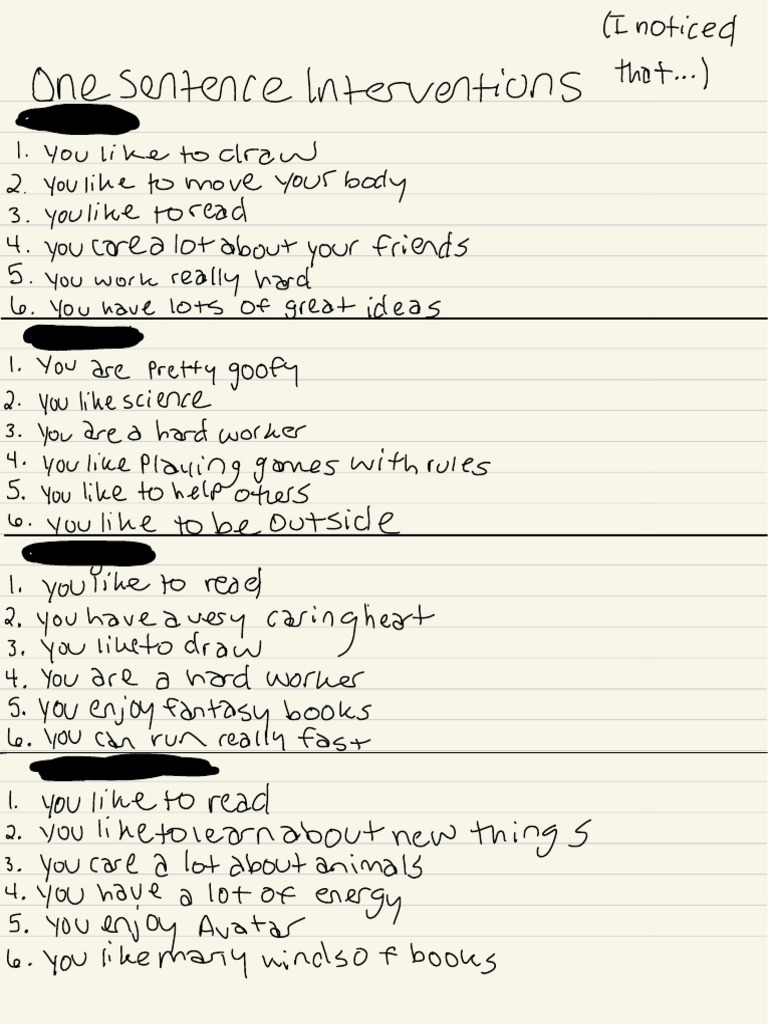 (I noticed
that...)
One Sentence Interventions
1. you like to draw
2. you like to move your body
3. you like to read
4. you care a lot about your friends
5. you work really hard
6. you have lots of great ideas
1. You are pretty goofy
2. you like science
3. you are a hard worker
4. you like playing games with rules
5. you like to help others
6. you like to be outside
1. you like to read
2. you have a very caring heart
3. you like to draw
4. you are a hard worker
5. you enjoy fantasy books
6. you can run really fast
1. you like to read
2. you like to learn about new things
3. you care a lot about animals
4. you have a lot of energy
5. you enjoy Avatar
6. you like many kinds of books